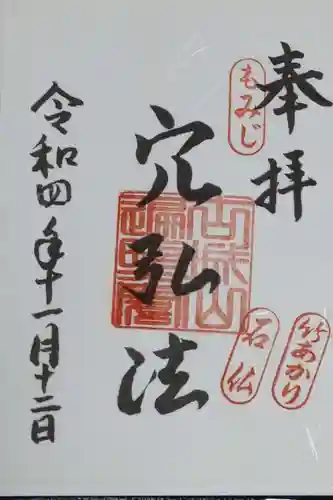 奉拝
もみじ
竹あかり
石仏
穴弘法
令和四年十一月十二日